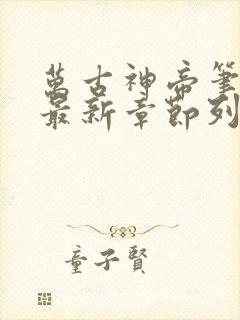 萬古神帝筆
最新章節列
童子賢